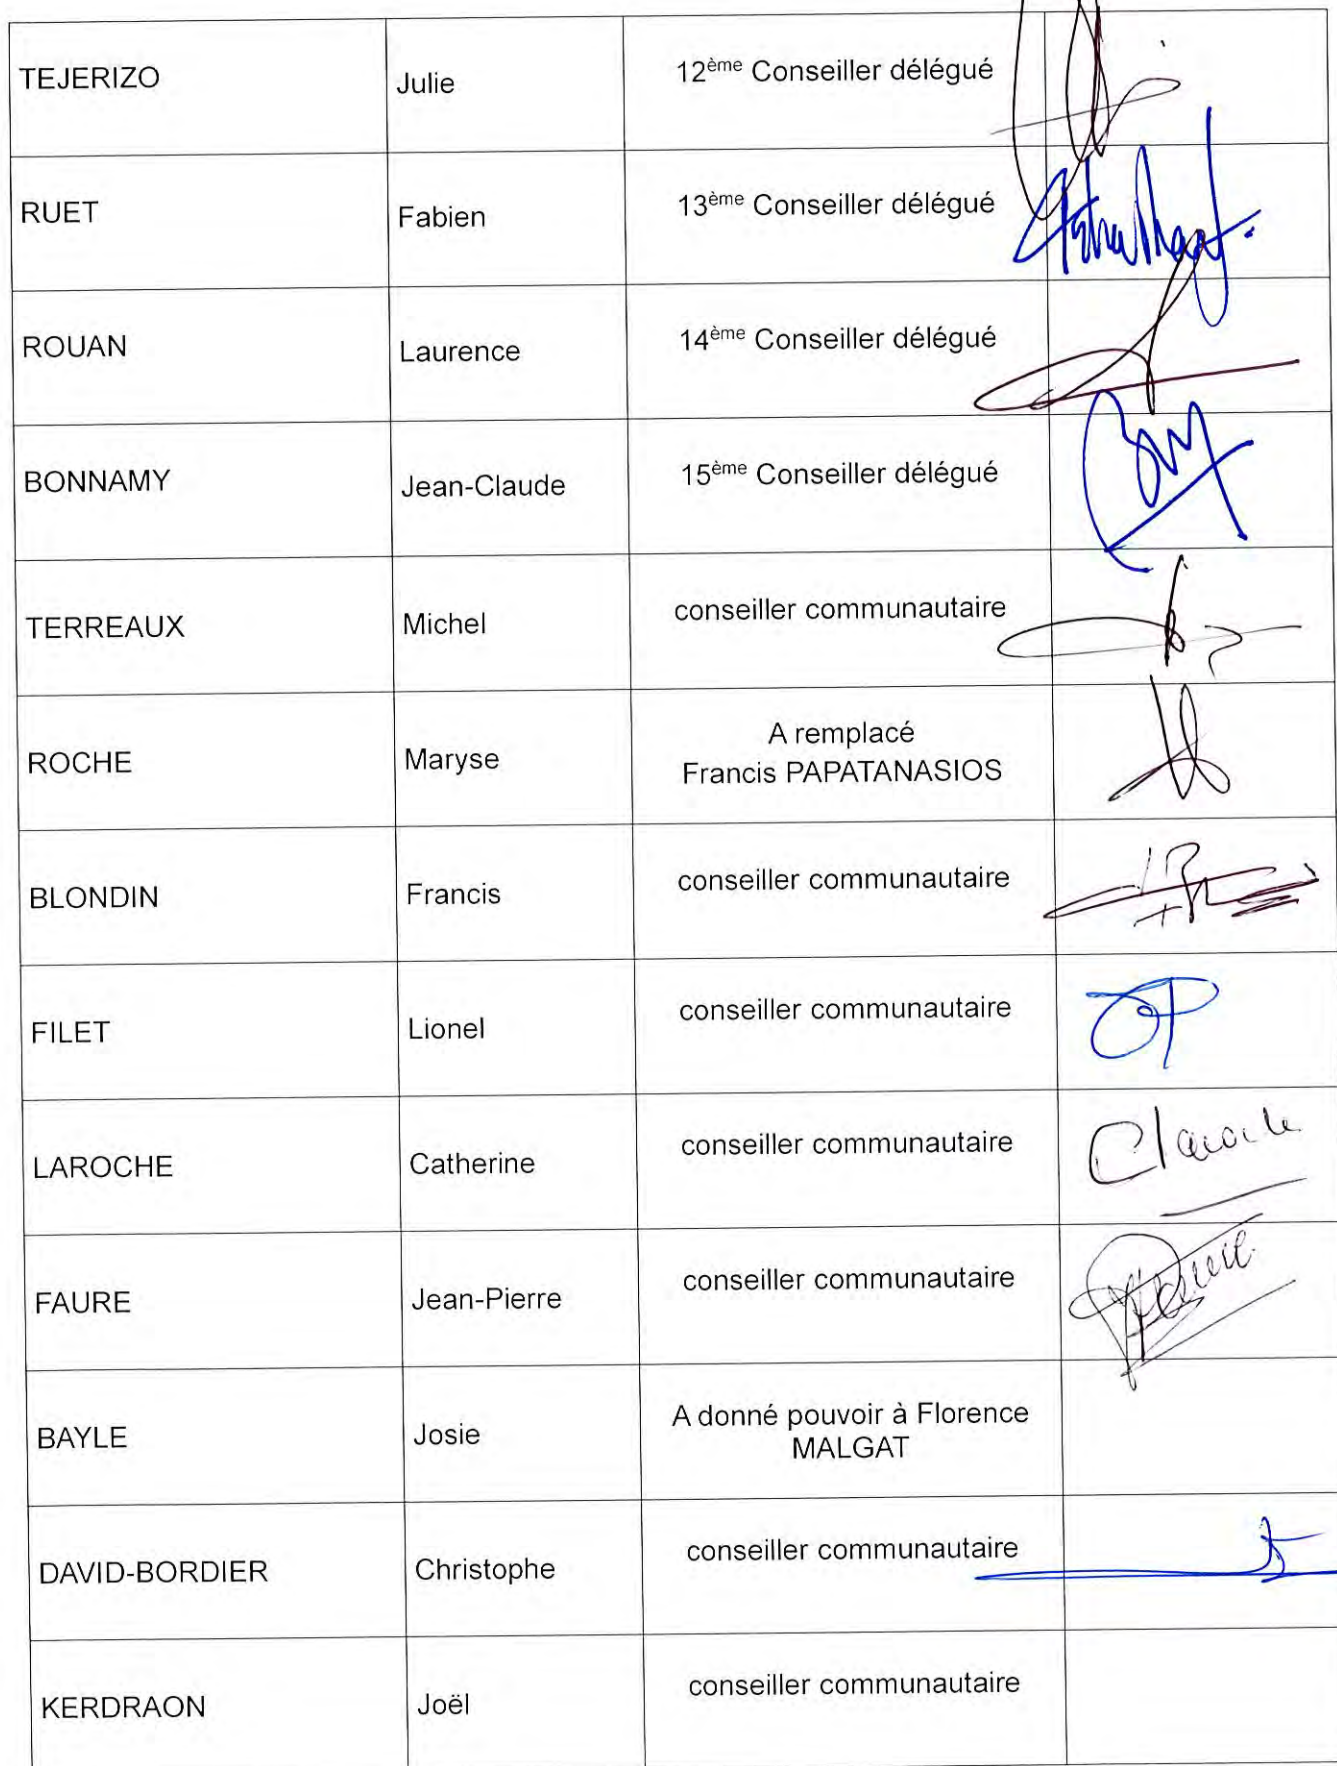 TEJERIZO Julie 12ème Conseiller délégué
RUET Fabien 13ème Conseiller délégué
ROUAN Laurence 14ème Conseiller délégué
BONNAMY Jean-Claude 15ème Conseiller délégué
TERREAUX Michel conseiller communautaire
ROCHE Maryse A remplacé
Francis PAPATANASIOS
BLONDIN Francis conseiller communautaire
FILET Lionel conseiller communautaire
LAROCHE Catherine conseiller communautaire
FAURE Jean-Pierre conseiller communautaire
BAYLE Josie A donné pouvoir à Florence
MALGAT
DAVID-BORDIER Christophe conseiller communautaire
KERDRAON Joël conseiller communautaire